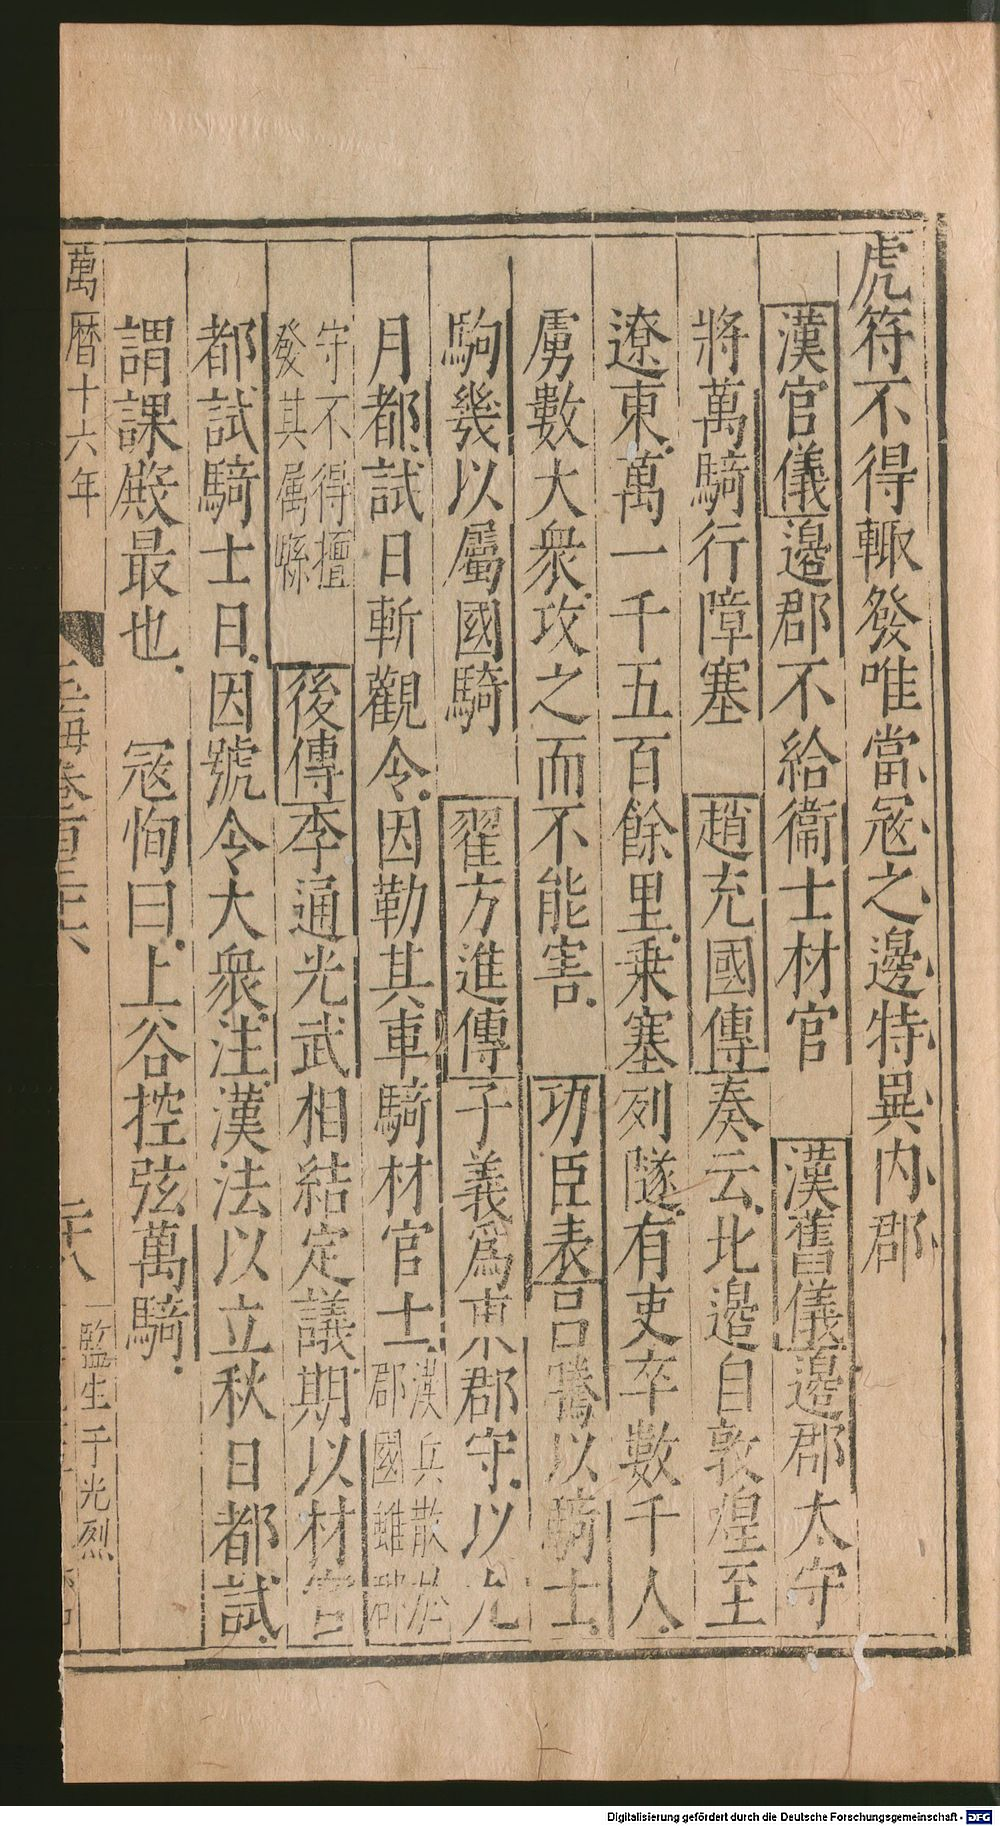 虎符不得輙發唯當冦之邊特異内郡
漢官儀邊郡不給衞士材官　漢舊儀邊郡太守
將萬騎行障塞　趙充國傳奏云北邉自敦煌至
遼東萬一千五百餘里乗塞列隧有吏卒數千人
虜數大衆攻之而不能害　功臣表吕騰以騎士
駒幾以屬國騎　翟方進傳子義爲東郡守以九
月都試日斬觀令因勒其車騎材官士漢兵散於郡國雖郡
守不得擅發其属縣　後傳李通光武相結定議期以材官
都試騎士日因號令大衆注漢法以立秋日都試
謂課殿最也　冦恂曰上谷控弦萬騎
萬曆十六年
玉海卷百三十六
二十八
監生于光烈
Digitalisierung gefördert durch die Deutsche Forschungsgemeinschaft - DFG